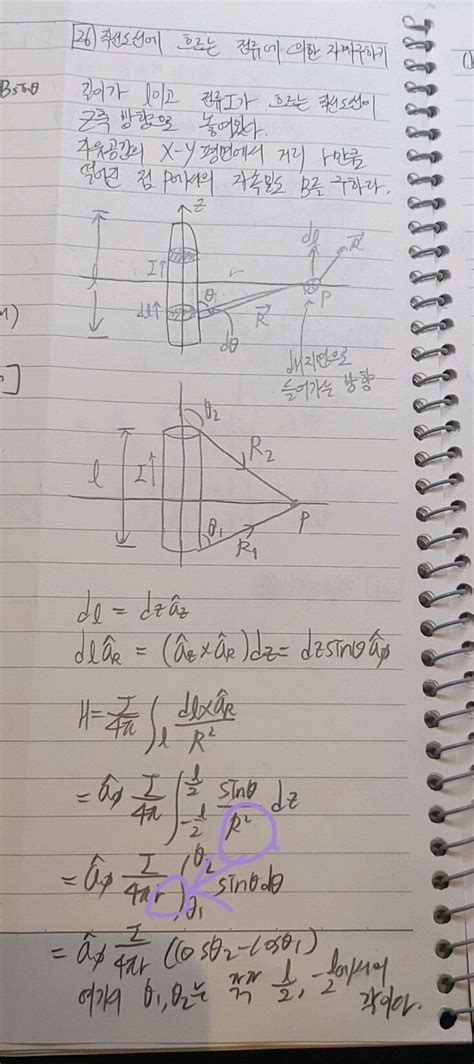 26) 직선도선에 흐르는 전류에 의한 자계구하기
Bsinθ
길이가 l이고 전류I가 흐르는 직선도선이
z축 방향으로 놓여있다.
자유공간의 X-Y평면에서 거리 r만큼
떨어진 점 P에서의 자속밀도 B를 구하라.
z
dl
R
l
I↑
P
dl↑
θ
R
dθ
dH지면으로
들어가는 방향
θ2
R2
l
I↑
P
θ1
R1
dl = dz âz
dl âR = (âz×âR)dz = dz sinθ âφ
H = I/4π ∫l dl×âR/R²
= âφ I/4π ∫-l/2 l/2 sinθ/R² dz
= âφ I/4πr ∫θ1 θ2 sinθdθ
= âφ I/4πr (cosθ2-cosθ1)
여기서 θ1, θ2는 각각 l/2, -l/2에서의
각이다.